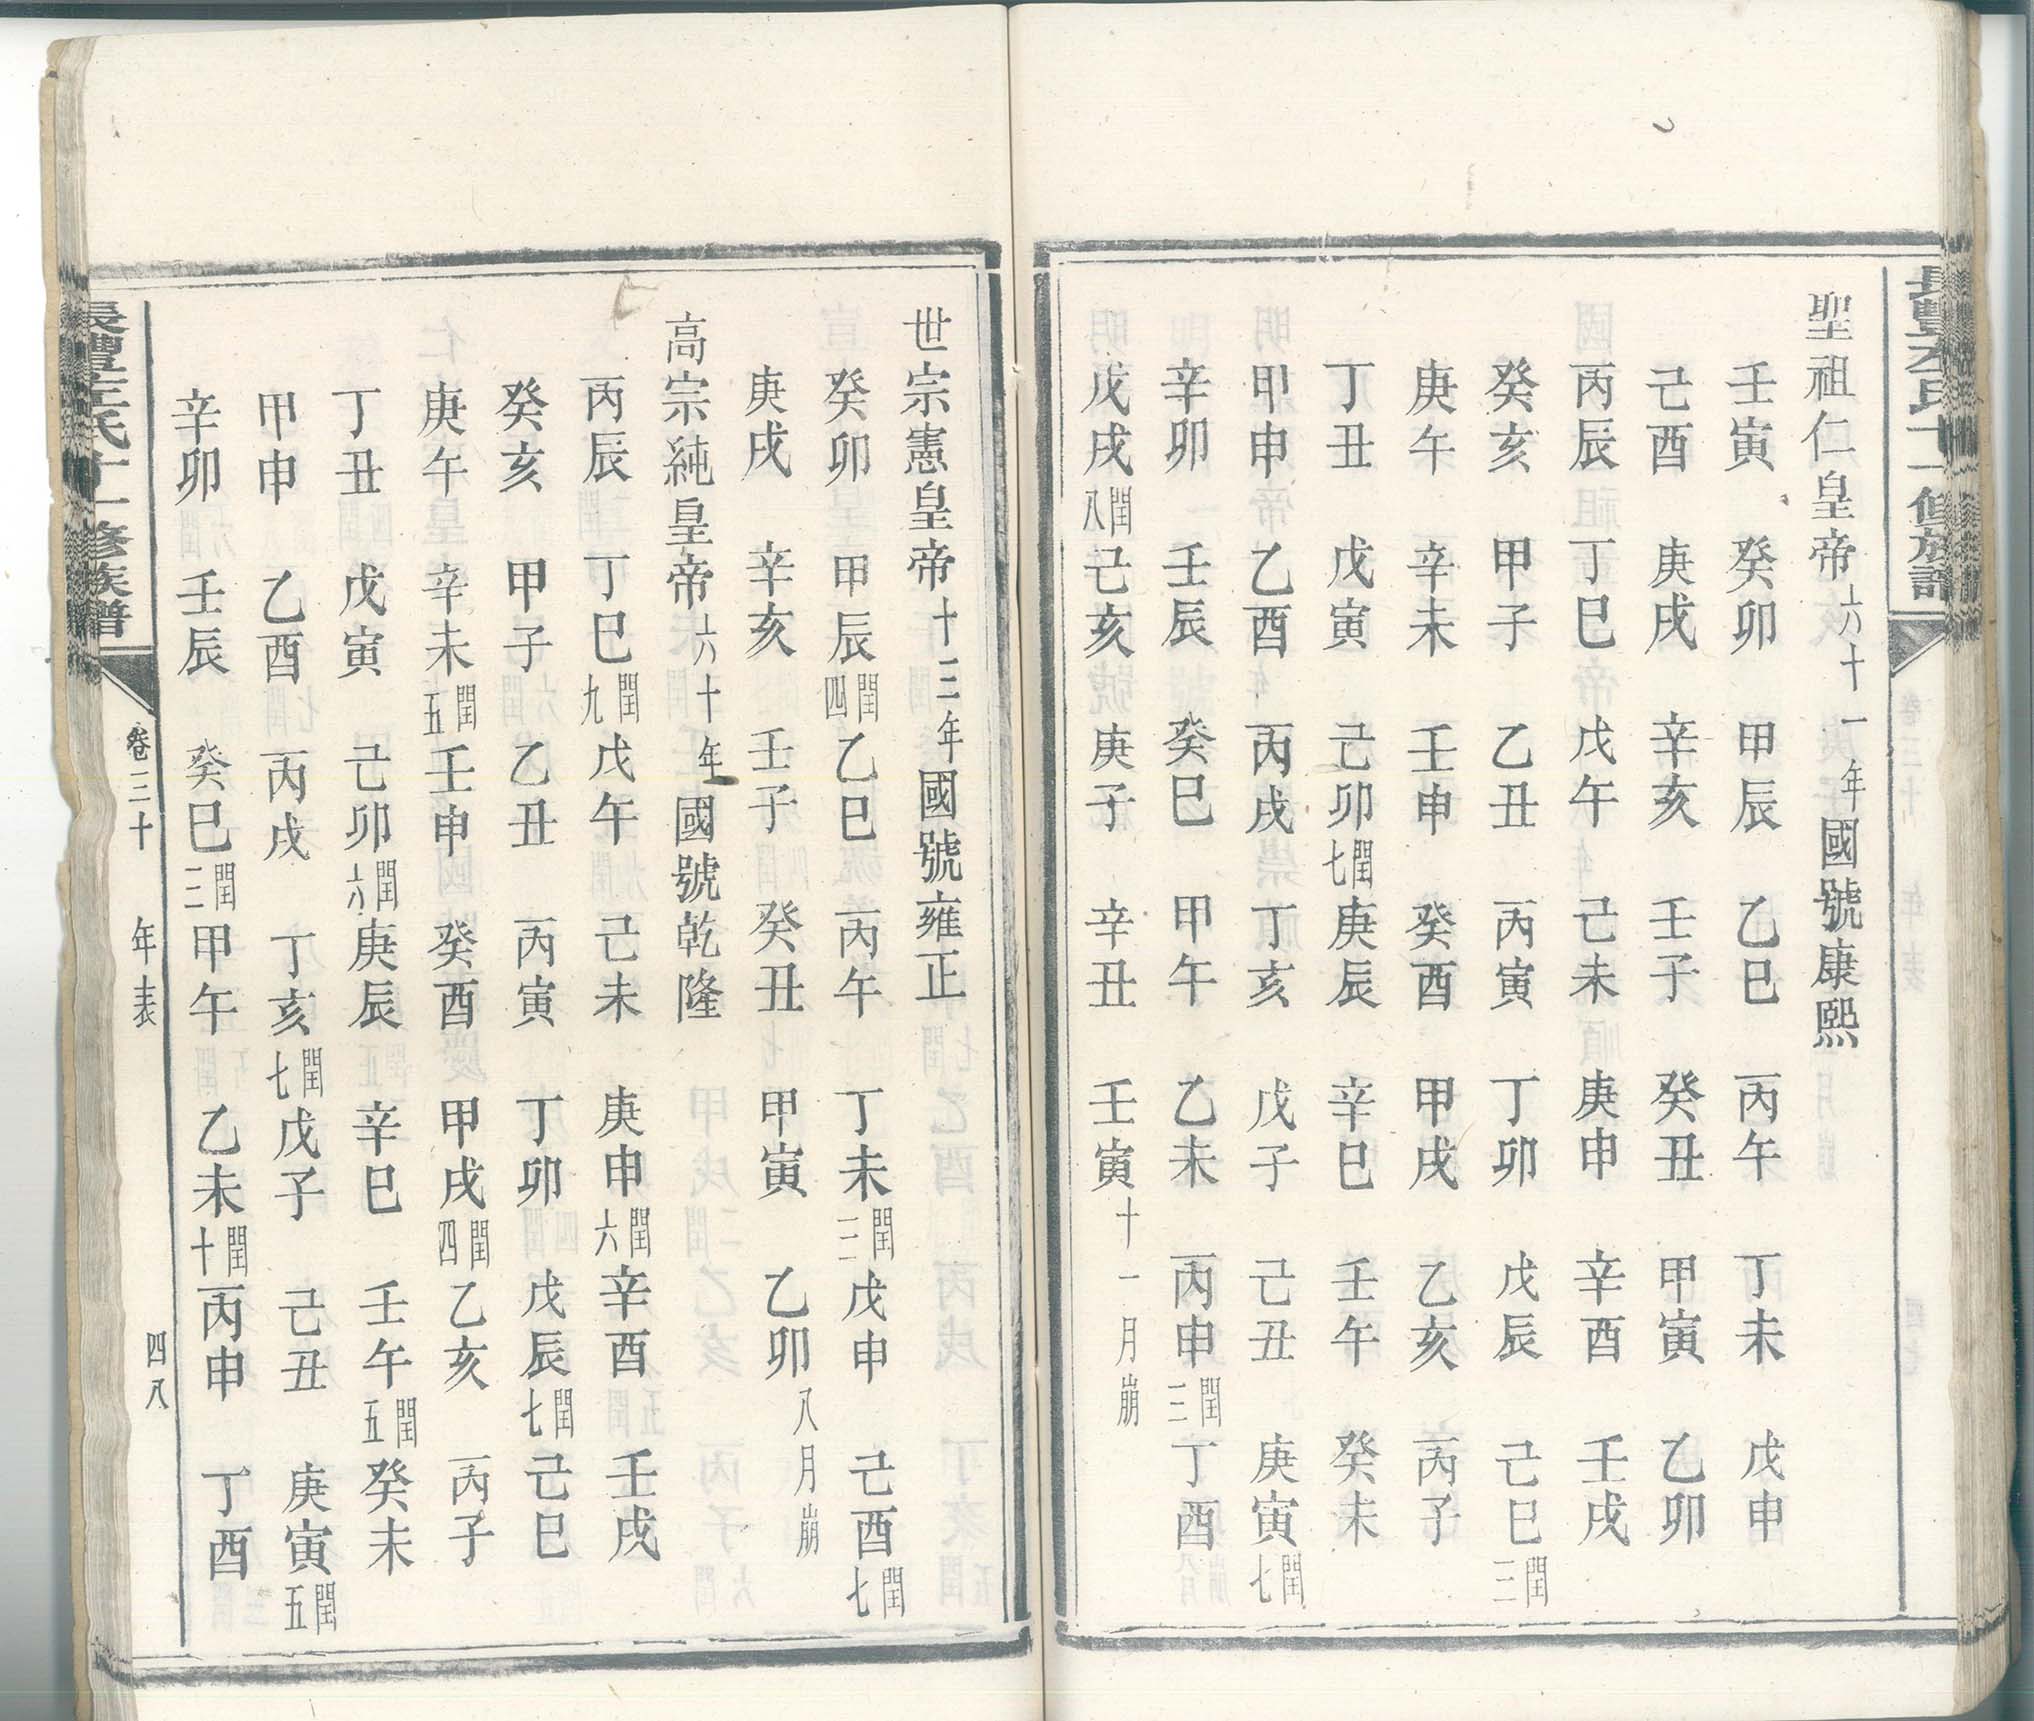 聖祖仁皇帝六十一年國號康熙
壬寅 癸卯 甲辰 乙巳 丙午 丁未 戊申
己酉 庚戌 辛亥 壬子 癸丑 甲寅 乙卯
丙辰 丁巳 戊午 己未 庚申 辛酉 壬戌
癸亥 甲子 乙丑 丙寅 丁卯 戊辰 己巳閏三
庚午 辛未 壬申 癸酉 甲戌 乙亥 丙子
丁丑 戊寅 己卯閏七 庚辰 辛巳 壬午 癸未
甲申 乙酉 丙戌 丁亥 戊子 己丑 庚寅閏七
辛卯 壬辰 癸巳 甲午 乙未 丙申閏三 丁酉
戊戌閏八 己亥 庚子 辛丑 壬寅十一月崩
世宗憲皇帝十三年國號雍正
癸卯 甲辰閏四 乙巳 丙午 丁未閏三 戊申 己酉閏七
庚戌 辛亥 壬子 癸丑 甲寅 乙卯八月崩
高宗純皇帝六十年國號乾隆
丙辰 丁巳閏九 戊午 己未 庚申閏六 辛酉 壬戌
癸亥 甲子 乙丑 丙寅 丁卯 戊辰閏七 己巳
庚午 辛未閏五 壬申 癸酉 甲戌閏四 乙亥 丙子
丁丑 戊寅 己卯閏六 庚辰 辛巳 壬午閏五 癸未
甲申 乙酉 丙戌 丁亥閏七 戊子 己丑 庚寅閏五
辛卯 壬辰 癸巳閏三 甲午 乙未閏十 丙申 丁酉
氏十一修族譜 卷三十 年表 四八